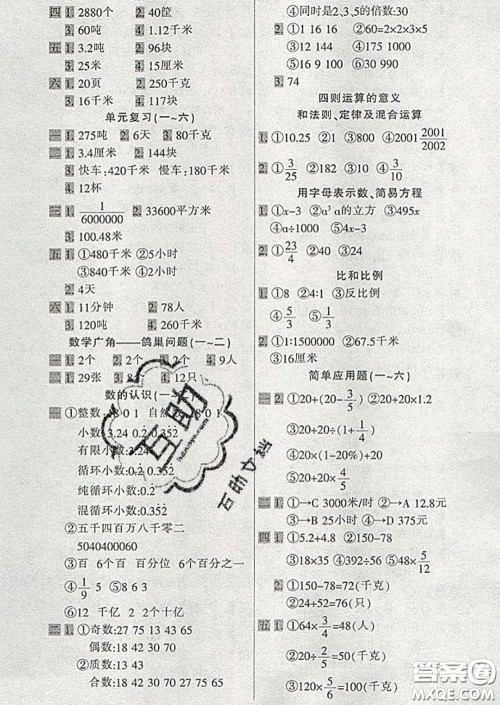 四 1. 2880个 2. 40筐
3. 60吨 4. 1.12千米
五 1. 3.2吨 2. 96块
3. 25米 4. 15厘米
六 1. 20页 2. 250千克
3. 16千米 4. 117块
单元复习(一~六)
一 1. 275吨 2. 6天 3. 80千克
二 1. 3.4厘米 2. 144块
3. 快车:420千米 慢车:380千米
4. 12杯
三 1. 1/6000000 2. 33600平方米
3. 100.48米
五 1. ①480千米 ②5小时
③840千米 ④2小时
2. 4天
六 1. 11分钟 2. 78人
3. 120吨 4. 260千米
数学广角——鸽巢问题(一~二)
一 1. 2个 2. 2个 3. 2个 4. 9人
二 1. 29张 4. 12只
数的认识(一
一 1. ①整数: 8 0 1 自 8 0 1
小数:3.24 0.2 0.352
有限小数:3.24
循环小数:0.2 0.352
纯循环小数:0.2
混循环小数:0.352
②五千四百万八千零二
5040400060
③百 6个百 百分位 6个百分之一
④1/9 5 ⑤8 4
⑥12 千亿 2个十亿
二 1. ①奇数:27 75 13 43 65
偶数:18 42 30 70
②质数:13 43
合数:18 42 30 70 27 75 65
④同时是2、3、5的倍数:30
2. ①1 16 16 ②60=2×2×3×5
③12 144 ④15 90 ⑤18
⑥10 ⑦36 ⑧60
3. 74
四则运算的意义
和法则、定律及混合运算
1. ①10.25 ②1 ③800 ④2001 2001/2002
2. ①3/25 ②182 ③10 ④3/10
用字母表示数、简易方程
1. ①x-3 ②a³ a的立方 ③495x
④a÷1000 ⑤4x-3
2. ①23/4 ②40 ③24
比和比例
1. ①8 ②4:1 ③反比例
④5/3 ⑤1/5
2. ①1:1500000 ②67.5千米
③16厘米
简单应用题(一~六)
1. ①20+(20-3/5) ②20+20×1.2
③20+20÷(1+1/4)
④20×(1-20%)+20
⑤20+20×4/5
1. ①→C 3000米/时 ②→A 12.8元
③→B 25小时 ④→D 375元
四 1. ①5.2+4.8 ②24×4
③18×35 ④392÷56 ⑤48×5/12
2. ①150-78=72(千克)
②24+52=76(只)
五 1. ①64×3/4=48(人)
②20÷1/5=100(千克)
③120×5/6=100(千克)
互助
答案圈
MXQE.COM